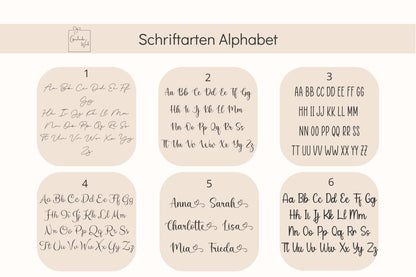 Schriftarten Alphabet
1
Aa Bb Cc Dd Ee Ff
Gg
Hh Ii Jj Kk Ll Mm
Nn Oo Pp Qq Rr Ss
Tt Uu Vv Ww Xx Yy
Zz
2
Aa Bb Cc Dd Ee Ff Gg
Hh Ii Jj Kk Ll Mm
Nn Oo Pp Qq Rr Ss
Tt Uu Vv Ww Xx Yy Zz
3
AA BB CC DD EE FF GG
HH II JJ KK LL MM
NN OO PP QQ RR SS
TT UU VV WW XX YY ZZ
4
Aa Bb Cc Dd Ee Ff Gg
Hh Ii Jj Kk Ll Mm
Nn Oo Pp Qq Rr Ss
Tt Uu Vv Ww Xx Yy Zz
5
Anna Sarah
Charlotte Lisa
Mia Frieda
6
Aa Bb Cc Dd Ee Ff Gg
Hh Ii Jj Kk Ll Mm
Nn Oo Pp Qq Rr Ss
Tt Uu Vv Ww Xx Yy Zz